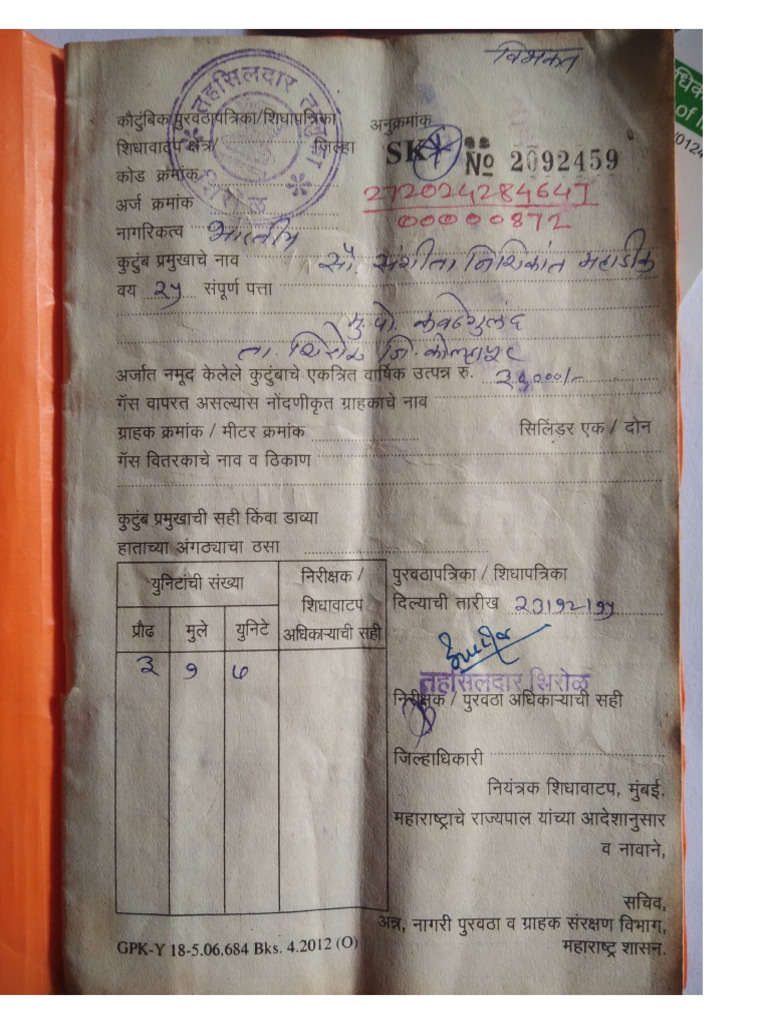 विभक्त
तहसिलदार
शिरोळ
कौटुंबिक पुरवठापत्रिका/शिधापत्रिका अनुक्रमांक
शिधावाटप क्षेत्र/ जिल्हा SK No 2092459
कोड क्रमांक 272024284647
अर्ज क्रमांक 00000872
नागरिकत्व भारतीय
कुटुंब प्रमुखाचे नाव सौ. संगीता निशिकांत महाडीक
वय २५ संपूर्ण पत्ता
मु.पो. कवठेगुलंद
ता. शिरोळ जि. कोल्हापूर
अर्जात नमूद केलेले कुटुंबाचे एकत्रित वार्षिक उत्पन्न रु.
गॅस वापरत असल्यास नोंदणीकृत ग्राहकाचे नाव
ग्राहक क्रमांक / मीटर क्रमांक सिलिंडर एक / दोन
गॅस वितरकाचे नाव व ठिकाण
कुटुंब प्रमुखाची सही किंवा डाव्या
हाताच्या अंगठ्याचा ठसा
युनिटांची संख्या निरीक्षक / शिधावाटप अधिकाऱ्याची सही
प्रौढ मुले युनिटे
३ १ ७
पुरवठापत्रिका / शिधापत्रिका
दिल्याची तारीख
तहसिलदार शिरोळ
निरीक्षक / पुरवठा अधिकाऱ्याची सही
जिल्हाधिकारी
नियंत्रक शिधावाटप, मुंबई.
महाराष्ट्राचे राज्यपाल यांच्या आदेशानुसार
व नावाने,
सचिव,
अन्न, नागरी पुरवठा व ग्राहक संरक्षण विभाग,
महाराष्ट्र शासन.
GPK-Y 18-5.06.684 Bks. 4.2012 (O)
of